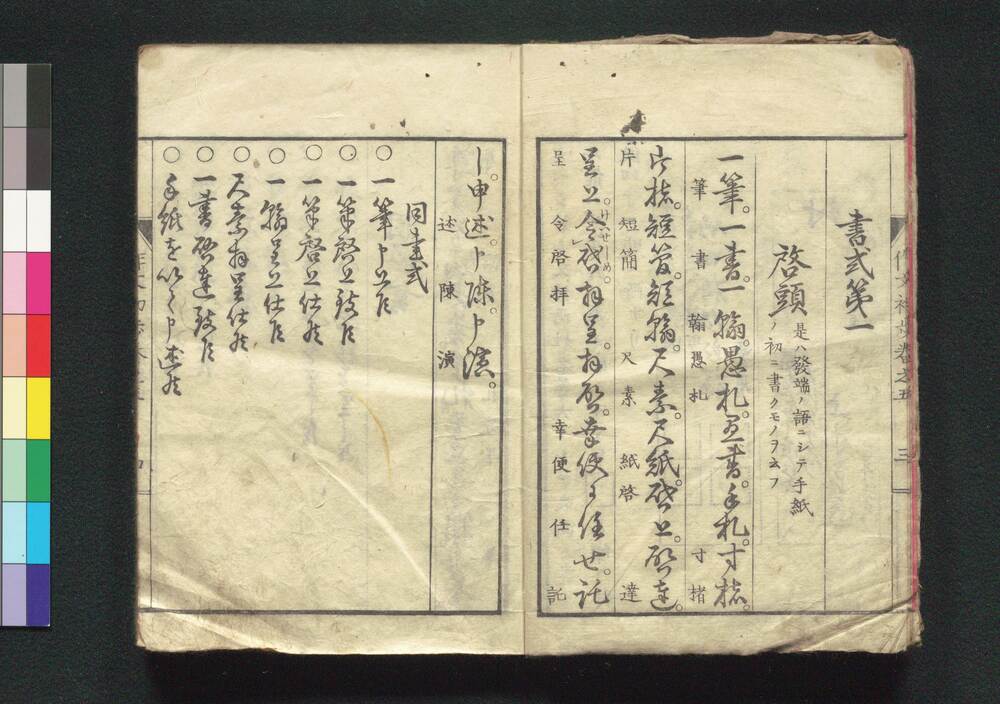 書式第一
啓頭 是ハ發端ノ語ニシテ手紙
ノ初ニ書クモノヲ云フ
一筆。一書。一翰。愚札。愚書。手札。寸楮。
筆 書 翰 愚 札 寸 楮
片楮。短簡。短翰。尺素。尺紙。啓上。啓達。
片 短 簡 尺 素 紙 啓 達
呈上。令啓。拝呈。拝啓。幸便に任せ。託
呈 令 啓 拝 幸 便 任 託
し申述。申陳。申演。
述 陳 演
同書式
○一筆申上候
○一筆啓上致候
○一筆啓上仕候
○一翰呈上仕候
○尺素拝呈仕候
○一書啓達致候
○手紙を以て申述候